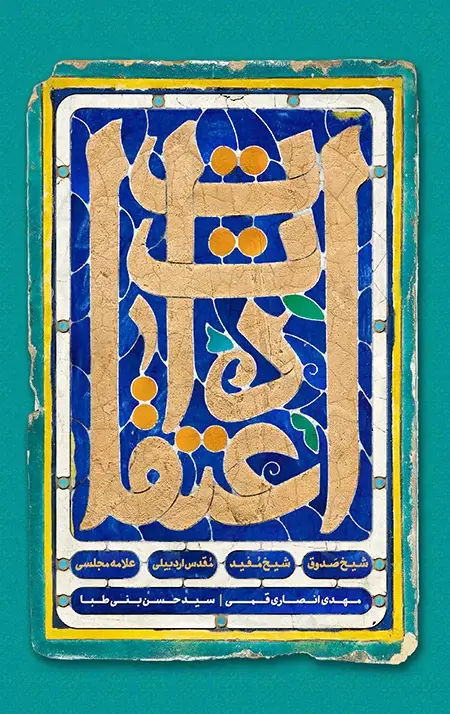 اعتقادات
شیخ صدوق شیخ مُفید مُقدس اردبیلی علامه مجلسی
مهدی انصاری قمی | سید حسن بنی طبا